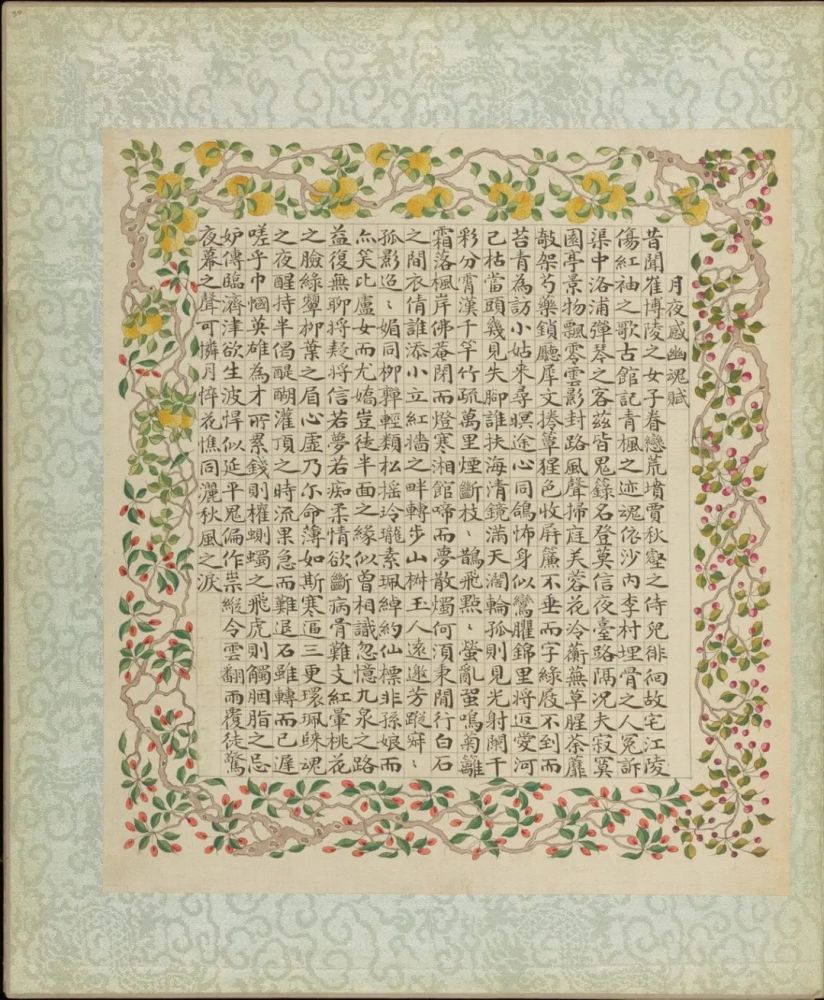 月夜感幽魂賦
昔聞崔博陵之女子眷戀荒墳賈秋壑之侍兒徘徊故宅江陵
傷紅袖之歌古館記青楓之迹魂依沙內李村埋骨之人冤訴
渠中洛浦彈琴之客茲皆鬼籙名登莫信夜臺路隔況夫寂寞
園亭景物飄零雲影封路風聲掃庭芙蓉花冷蘅蕪草腥荼蘼
敧架芍藥鎖廳犀文捲簟猩色收屏簾不垂而字綠屐不到而
苔青為訪小姑來尋暝途心同鴿怖身似鸞臞錦里將逗愛河
已枯當頭幾見失腳誰扶海清鏡滿天闊輪孤則見光射闌干
彩分霄漢千竿竹疏萬里煙斷枝〻鵲飛點〻螢亂蛩鳴菊籬
霜落楓岸佛菴閉而燈寒湘館啼而夢散燭何須秉閒行白石
之間衣倩誰添小立紅墻之畔轉步山樹玉人遠邀芳蹤寂〻
孤影迢〻媚同柳嚲輕類松搖玲瓏素珮綽約仙標非孫娘而
亦笑比盧女而尤嬌豈徒半面之緣似曾相識忽憶九泉之路
益復無聊將疑將信若夢若痴柔情欲斷病骨難支紅暈桃花
之臉綠顰柳葉之眉心虛乃尔命薄如斯寒逼三更環珮歸魂
之夜醒持半偈醍醐灌頂之時流果急而難退石雖轉而已遲
嗟乎巾幗英雄為才所累錢則櫂蜩蠋之飛虎則觸胭脂之忌
妒傳臨濟津欲生波悍似延平鬼偏作祟縱令雲翻雨覆徒驚
夜幕之聲可憐月悴花憔同灑秋風之淚